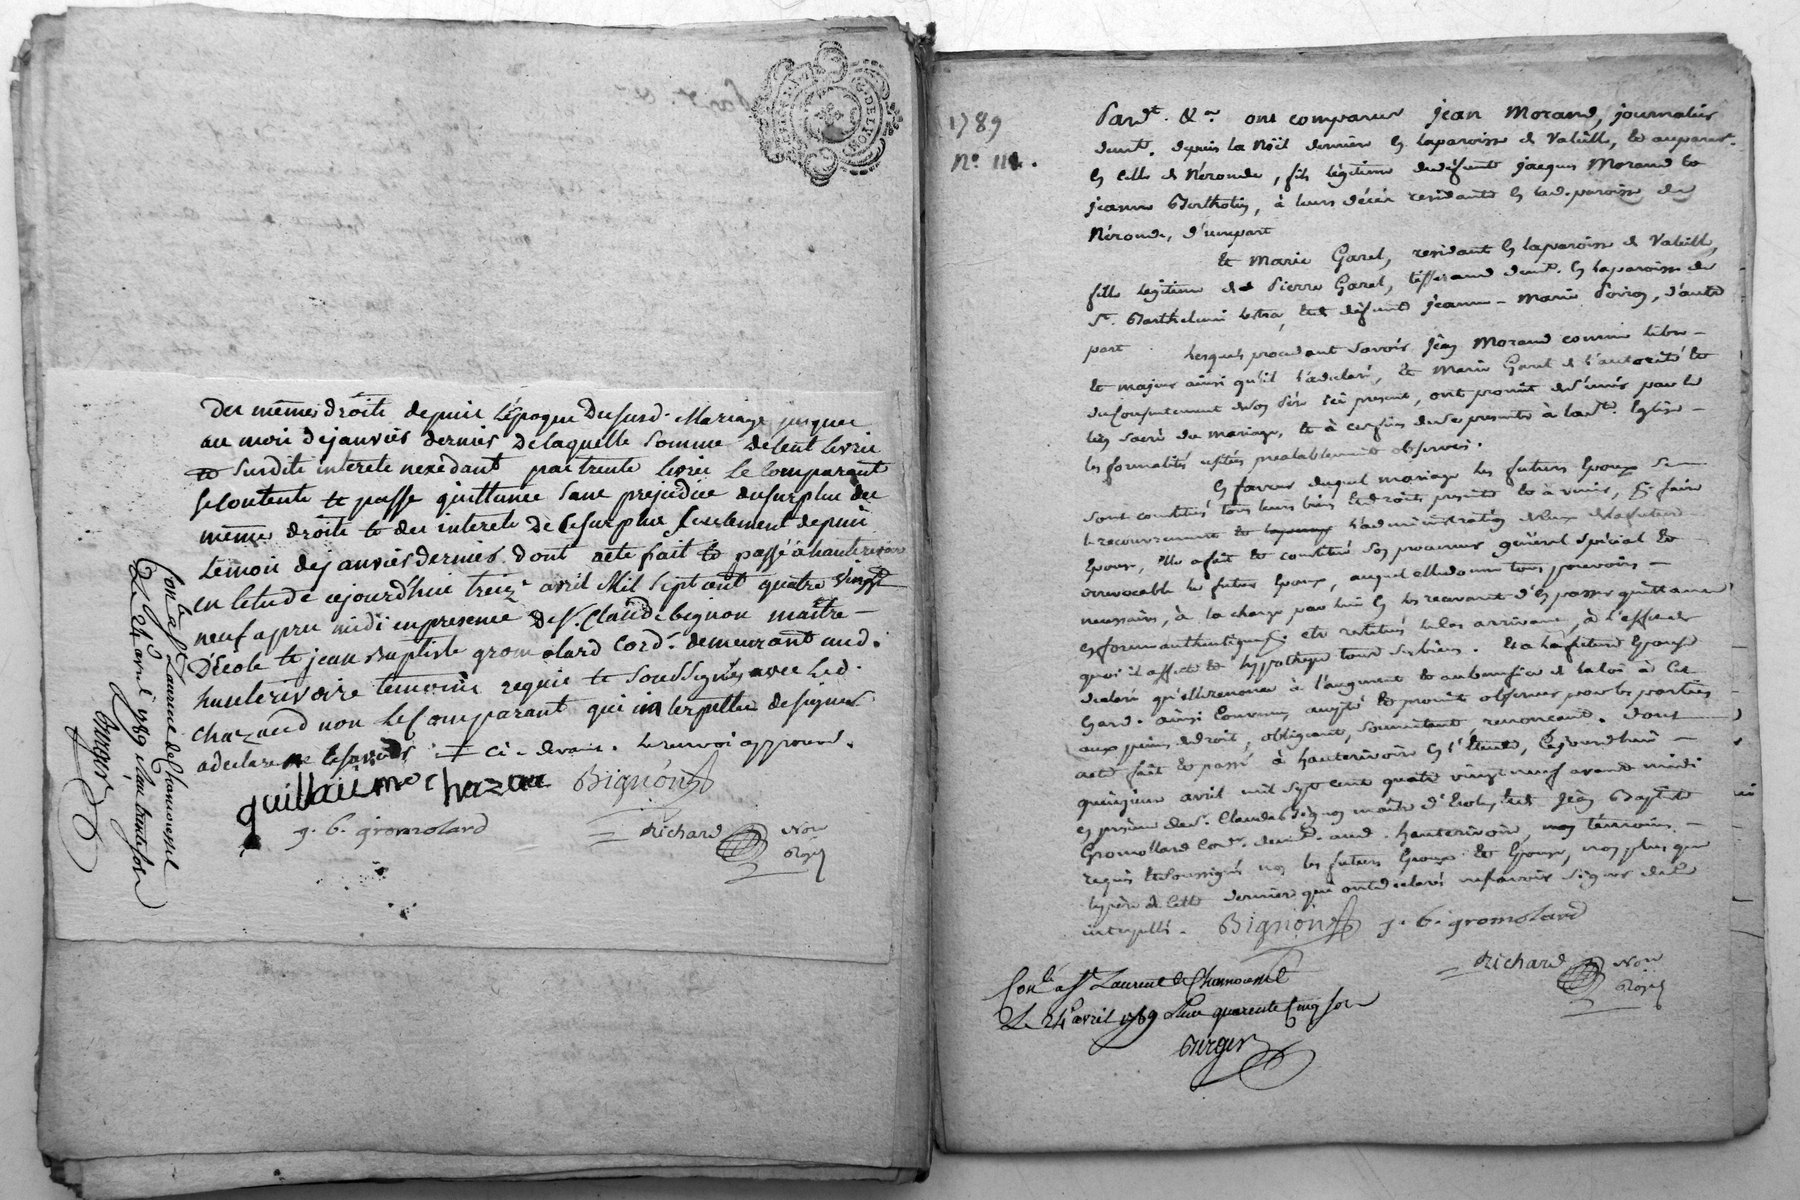 des mêmes droits depuis L'époque Dususd. Mariage jusques
au mois dejanvier dernier De laquelle somme de Cent livres
Susdits interets nexédant pas trente livres Le Comparant
Se Contente te passe quittance Sans prejudice dusurplus des
mêmes droits te des interets De Cesurplus seulement depuis
Lemois dejanvier dernier. Dont acte fait te passé à hauterivoire
en Letude cejourd'hui treize avril Mil Sept cent quatre vingt
neuf apres midi en presence de Sr. Claude bignon maître
D'école te jean Baptiste gromolard Cord.r demeurant aud.
hauterivoire temoins requis te Soussignés avec Led.
chazaud non Le Comparant qui interpellé de signer
a declaré ne le savoir ci-devant. Le renvoi approuvé.
guillaume chazau Bignon
j. b. gromolard
Richard Nore
Royal
Con.lé a St Laurent de Chamousset
Le 24 avril 1789 Reçu trente sols
Burger
G. DE LYON
1789
N.o 114.
Pard.t &.a ont comparus jean Morand, journalier
demt. depuis la Noël derniere en laparoisse de Valeille, et auparavt.
en celle de Néronde, fils légitime dudéfunt jacques Morand et
jeanne Bertholin, à leurs décès residants en lad. paroisse de
Néronde, d'unepart
Et Marie Garel, residant en laparoisse de Valeille,
fille légitime de Pierre Garel, tisserand demt. en laparoisse de
St. Barthelemi lestra, et de défunte jeanne-Marie Poiron, d'autre
part Lesquels procedant savoir jean Morand comme libre
et majeur ainsi qu'il l'adeclaré, et Marie Garel de l'autorité et
du consentement deson père ici present, ont promis de s'unir par le
lien sacré du mariage, et à ces fins de se presenter à la Ste. Eglise
les formalités usitées prealablement observées.
En faveur duquel mariage les futurs époux se
sont constitués tous leurs biens et droits presents et à venir, pr. faire
le recouvrement et l'administration de ceux de la future
Epouse, elle a fait et constitué son procureur général spécial et
irrevocable le futur époux, auquel elle donne tous pouvoirs
necessaires, à la charge par lui en les recevant d'en passer quittance
en forme authentique, et de restituer le cas arrivant, à l'effet de
quoi il affecte et hypotheque tous ses biens. Et a la future épouse
declaré qu'elle renonce à l'augment et au benefice de la loi à cet
égard. ainsi convenu, accepté et promis observer par les parties
aux peines de droit, obligeant, soumettant renonçant. Dont
acte fait et passé à hauterivoire en l'Etude, cejourdhui
quinzieme avril mil sept cent quatre vingt neuf avant midi
en présence de Sr. Claude Bignon maître d'Ecole, et de jean Baptiste
Gromollard Cord.r demt. aud. hauterivoire, nos témoins
requis et soussignés non les futurs époux et épouse, non plus que
le père de cette dernière qui ont declarés ne savoir signer de ce
interpellés. Bignon j. b. gromolard
Richard Nore
Royal
Con.lé a St Laurent de Chamousset
Le 24 avril 1789 Reçu quarente Cinq sols
Burger